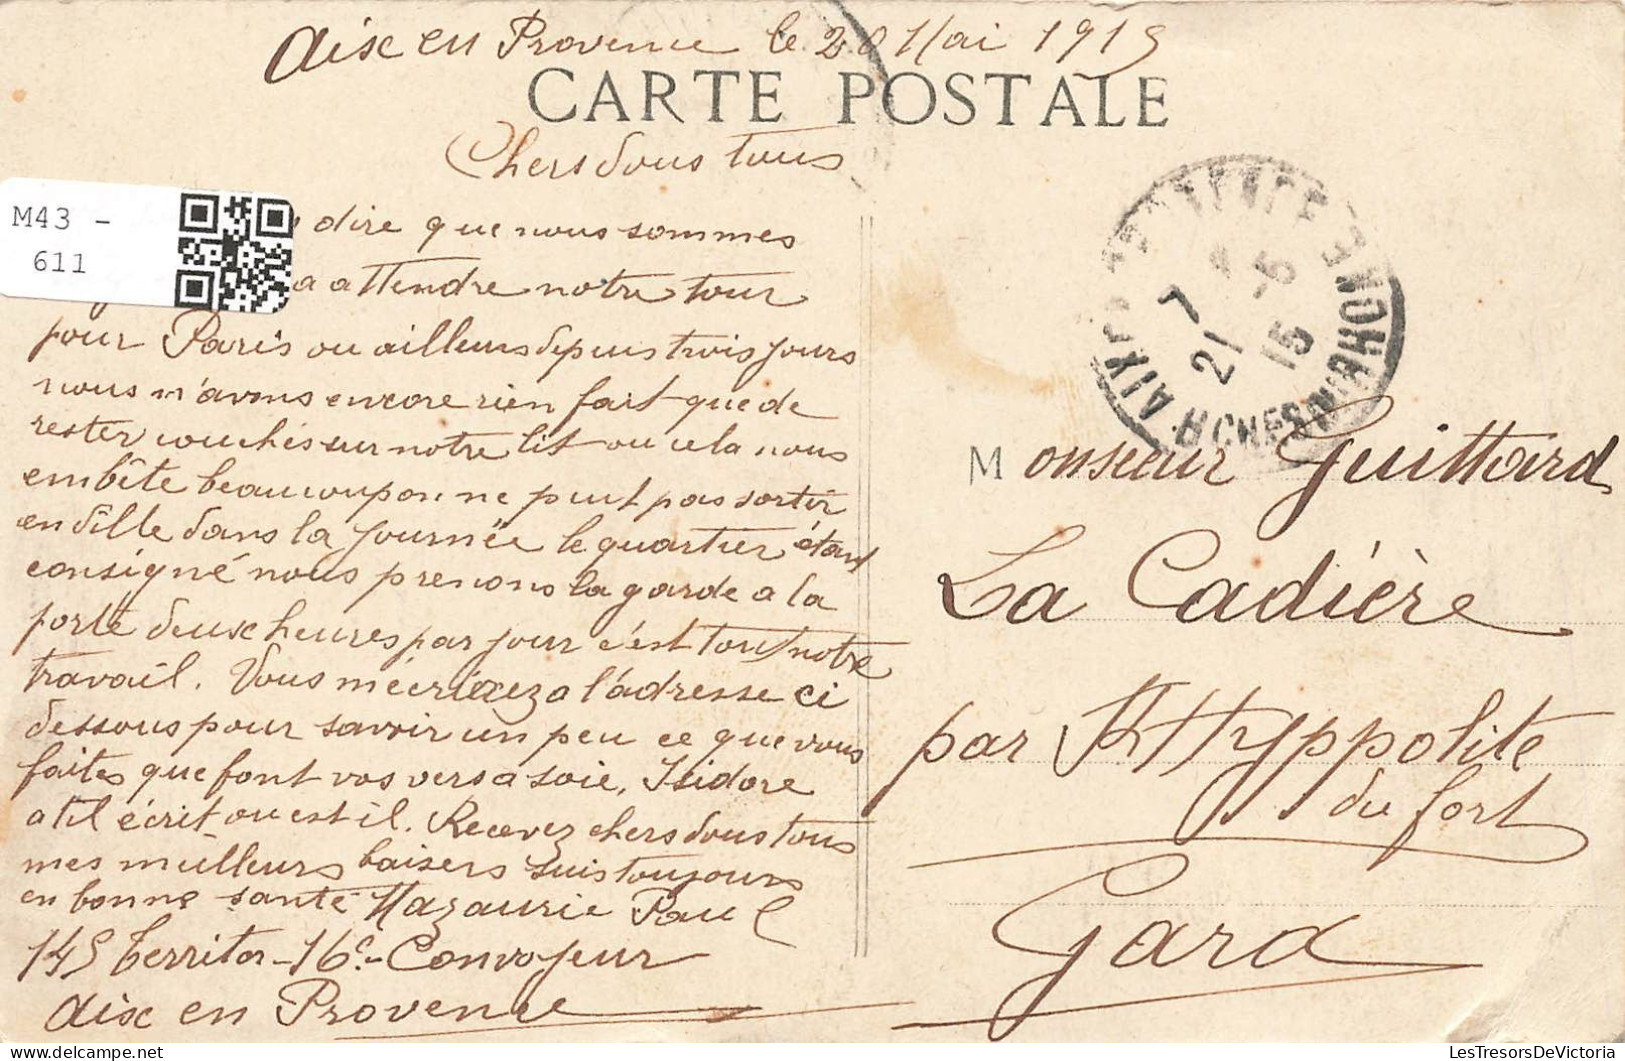 Aix en Provence le 20 Mai 1915
CARTE POSTALE
Chers Vous tous
M43 -
611
dire que nous sommes
a attendre notre tour
pour Paris ou ailleurs depuis trois jours
nous n'avons encore rien fait que de
rester couchés sur notre lit ou cela nous
embête beaucoup on ne peut pas sortir
en Ville dans la journée le quartier étant
consigné nous prenons la garde a la
porte deux heures par jour c'est tout notre
travail. Vous m'écrirez a l'adresse ci
dessous pour savoir un peu ce que vous
faites que font vos vers a soie, Isidore
a til écrit ou est il. Recevez chers Vous tous
mes meilleurs baisers suis toujours
en bonne santé Mazaurie Paul
145 Territor - 16e - Convoyeur
Aix en Provence
AIX EN PROVENCE BOUCHES DU RHONE
7
21 -5
15
Monsieur Guittard
La Cadière
par St Hyppolite
du fort
Gard
LesTresorsDeVictoria